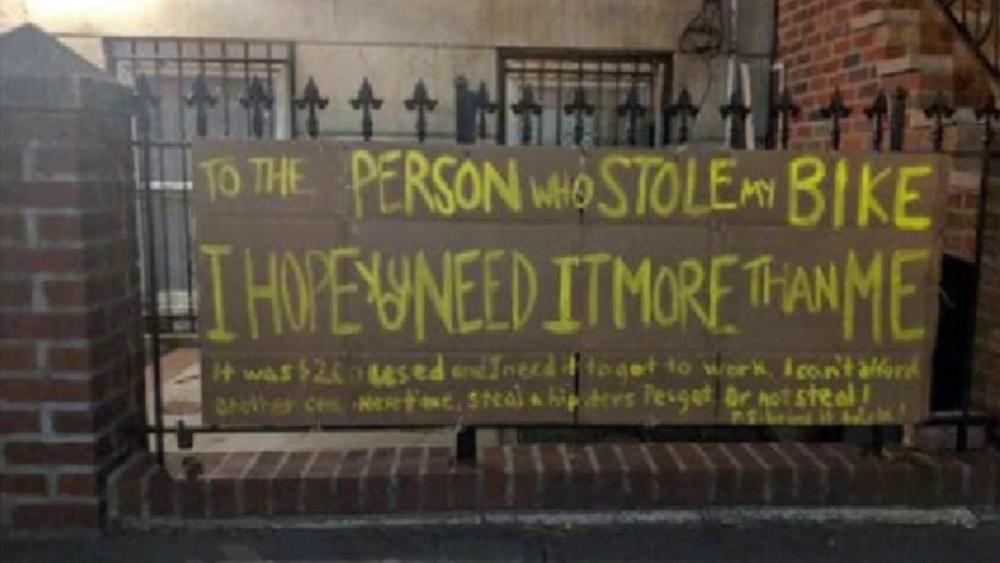 TO THE PERSON WHO STOLE MY BIKE
I HOPE YOU NEED IT MORE THAN ME
It was used and I need it to get to work. I can't afford
another one. Next time, steal a hipsters Peugot. Or not steal!
P.S. bring it back!